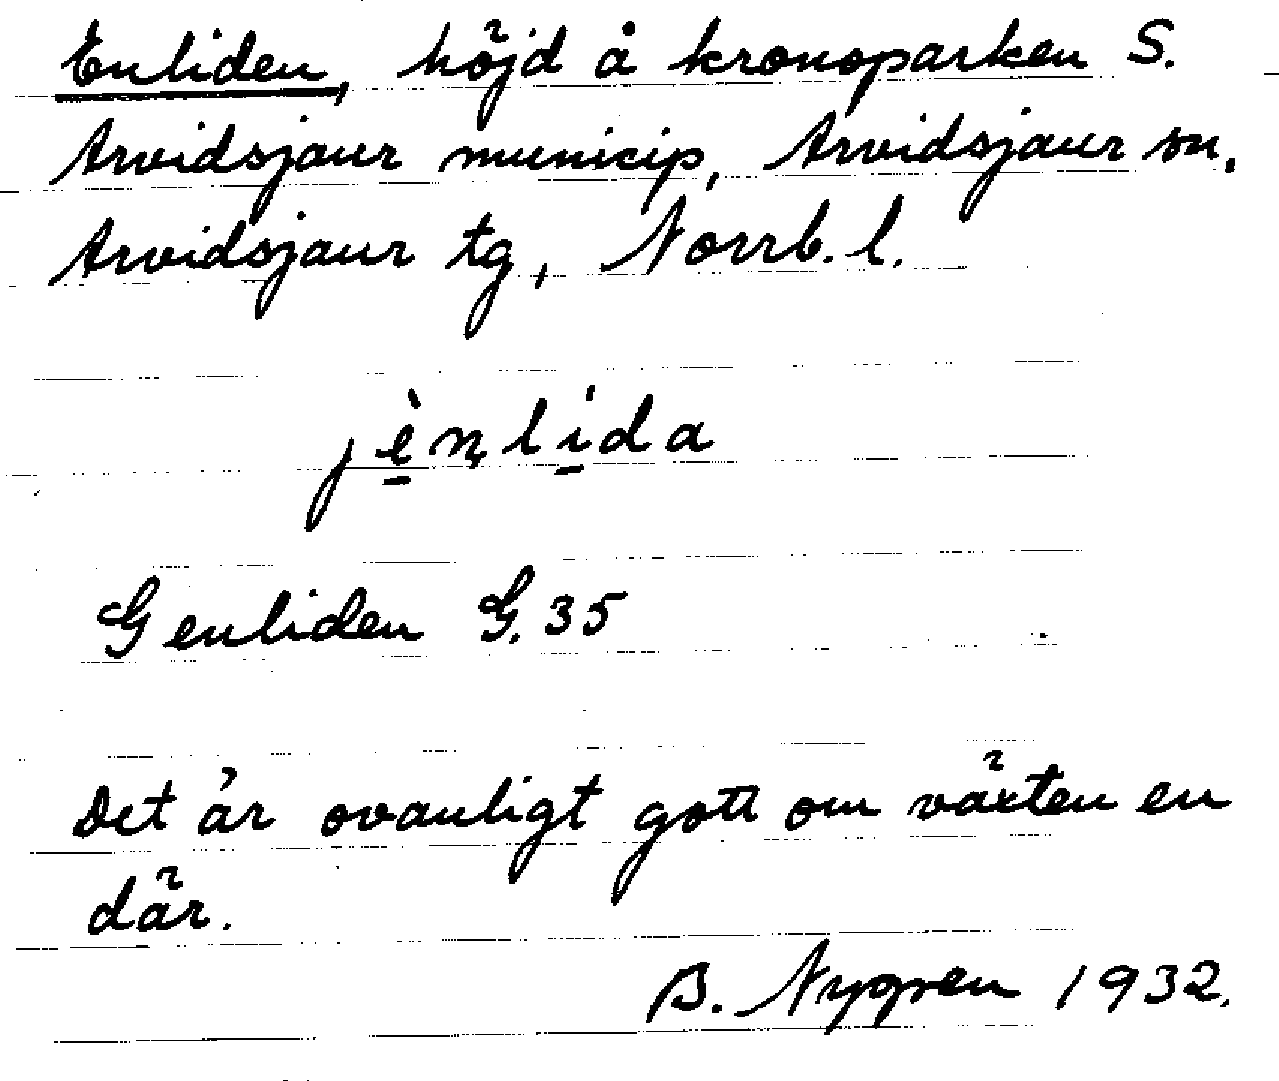 Enliden, höjd å kronoparken S.
Arvidsjaur municip, Arvidsjaur sn.
Arvidsjaur tg, Norrb. l.
jènlida
Genliden G. 35
Det är ovanligt gott om växten en
där.
B. Nygren 1932.